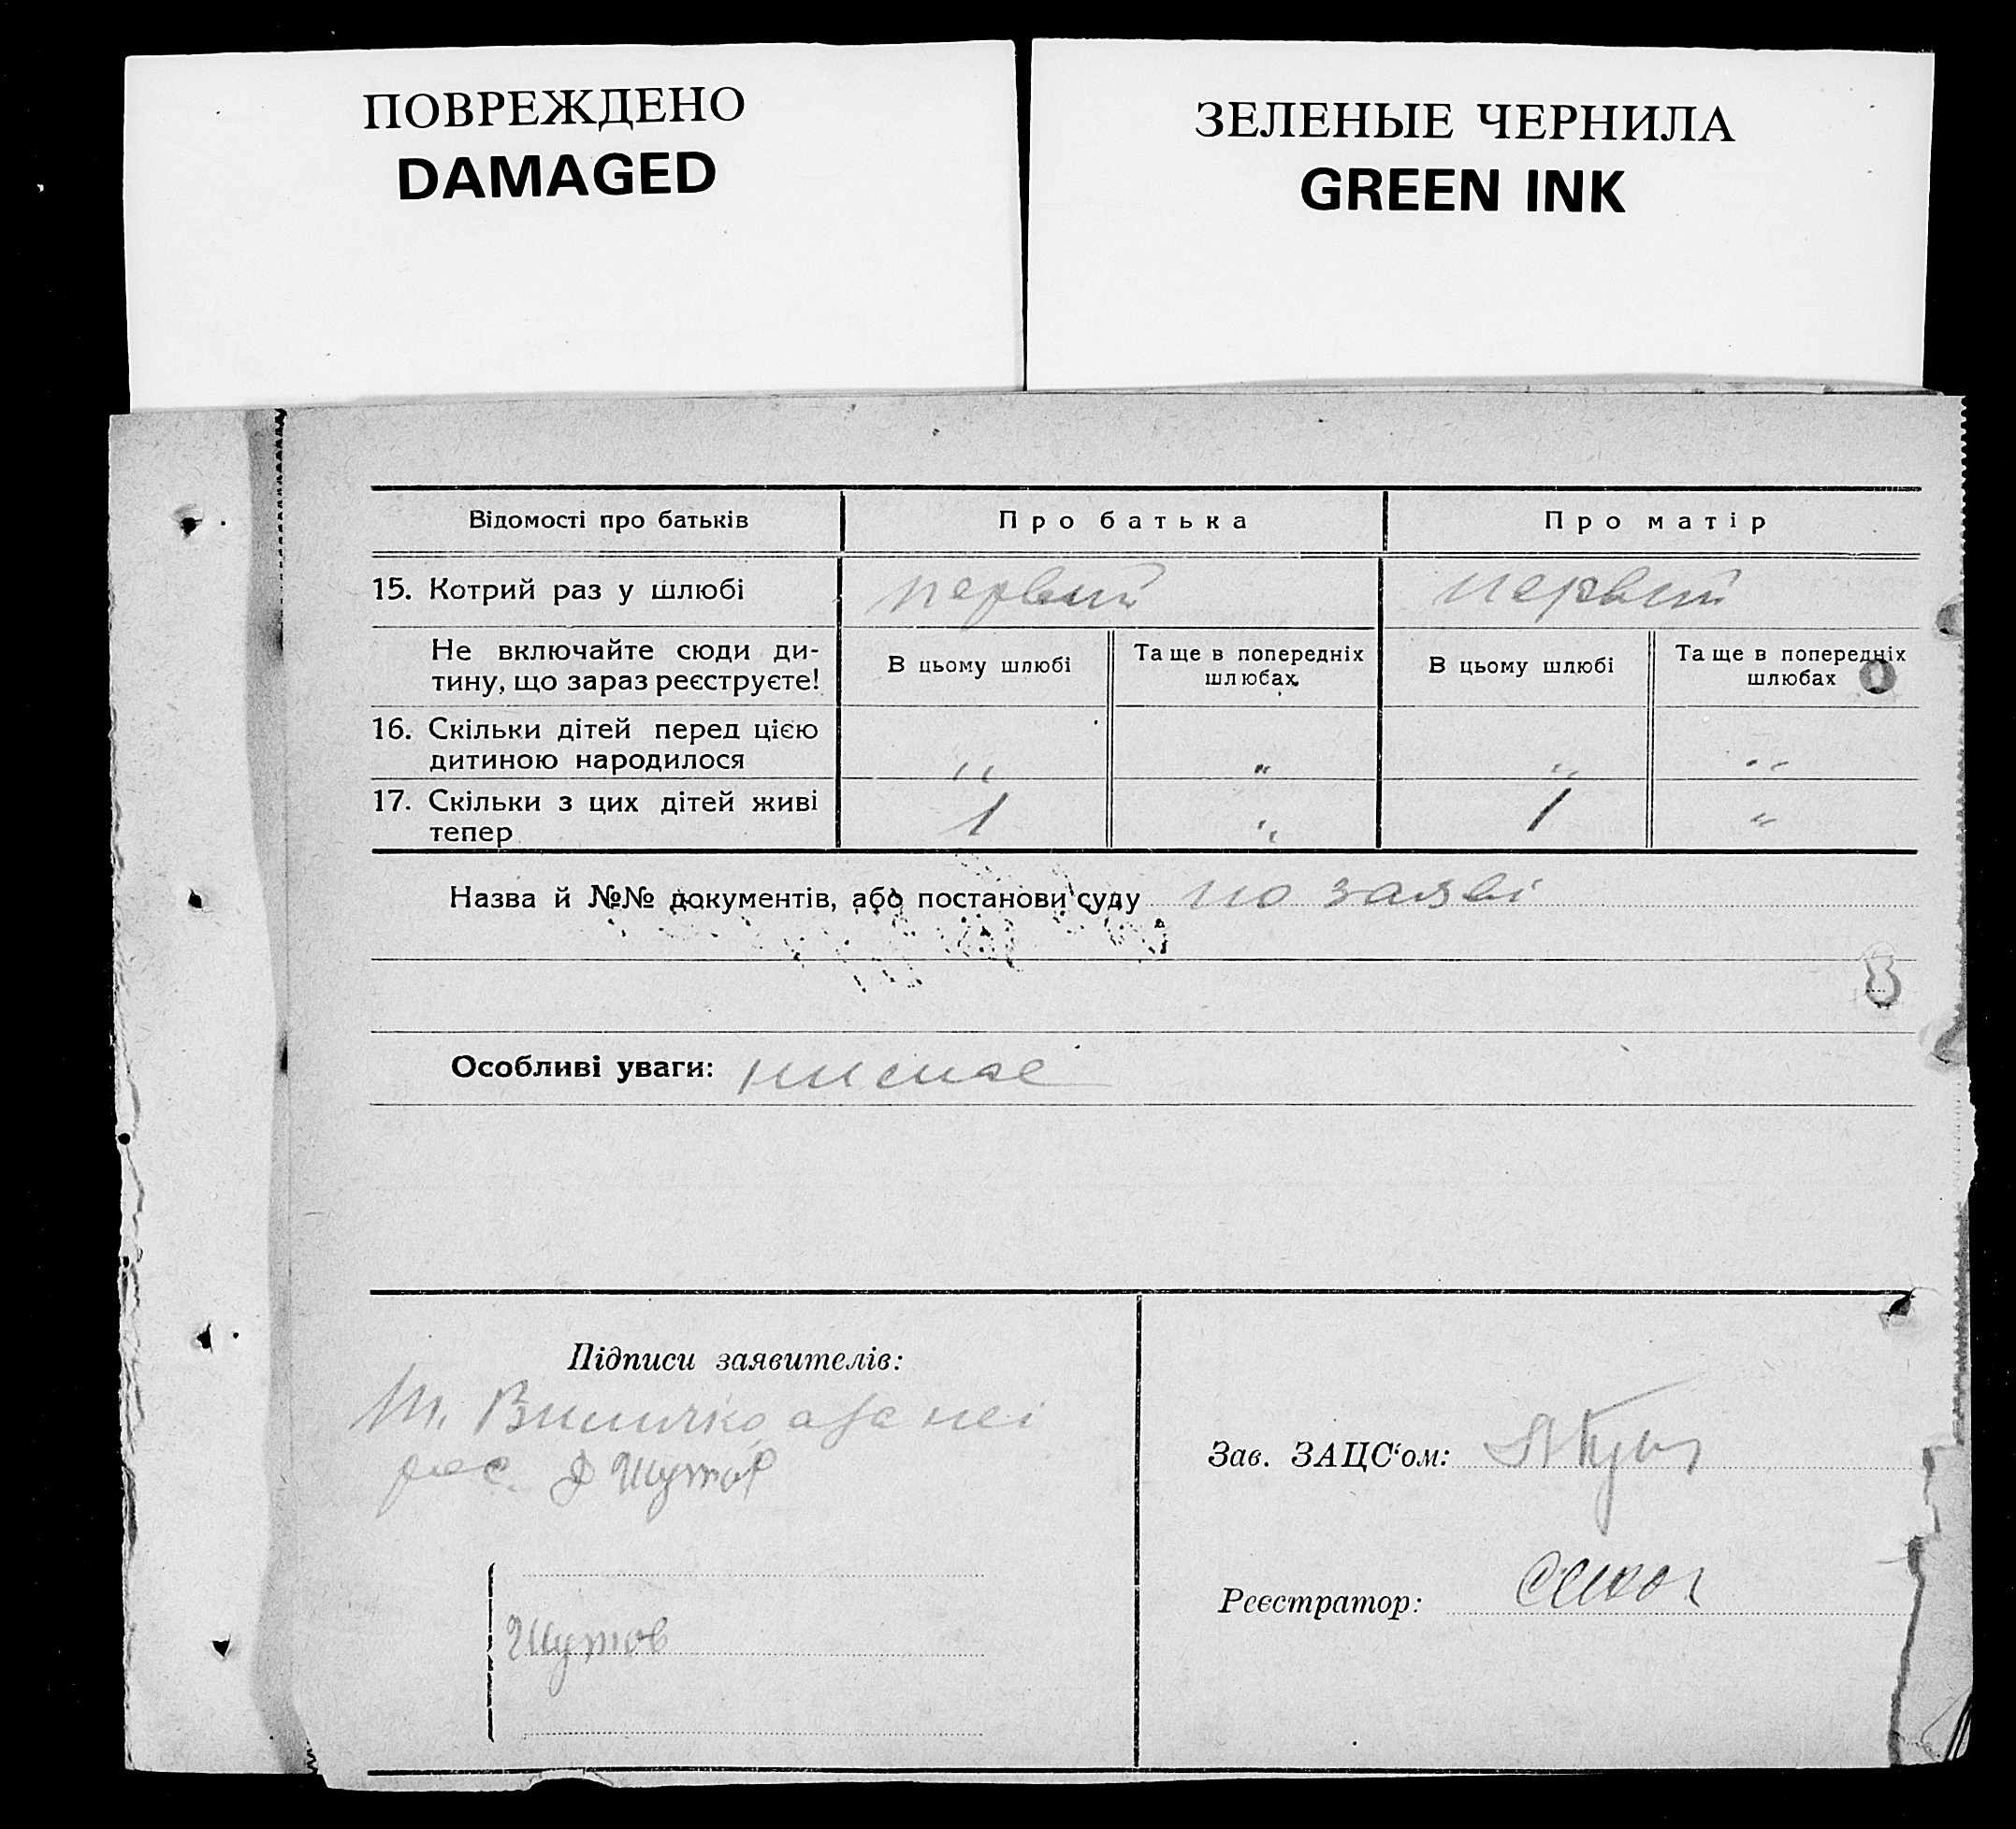 ПОВРЕЖДЕНО
DAMAGED
ЗЕЛЕНЫЕ ЧЕРНИЛА
GREEN INK
Відомості про батьків
Про батька
Про матір
15. Котрий раз у шлюбі
первий
первий
Не включайте сюди ди-
тину, що зараз реєструєте!
В цьому шлюбі
Та ще в попередніх
шлюбах
В цьому шлюбі
Та ще в попередніх
шлюбах
16. Скільки дітей перед цією
дитиною народилося
"
"
"
"
17. Скільки з цих дітей живі
тепер
1
"
1
"
Назва й №№ документів, або постанови суду по заяві
Особливі уваги: немає
Підписи заявителів:
Шутов
Шутов
Зав. ЗАЦС'ом:
Реєстратор: